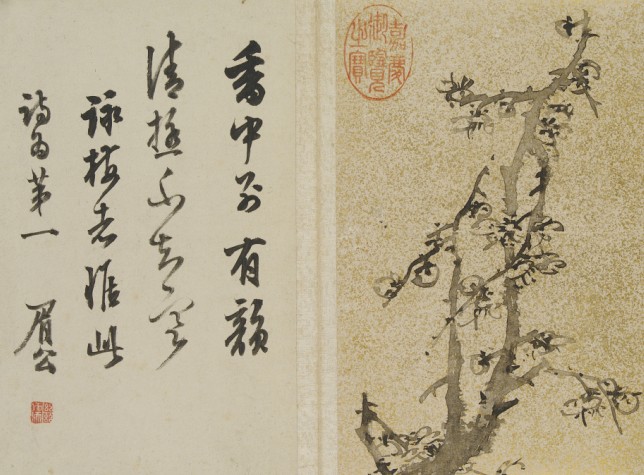 嘉慶
御覽
之寶
香中別有韻
清極不知寒
詠梅者推此
詩為第一
眉公